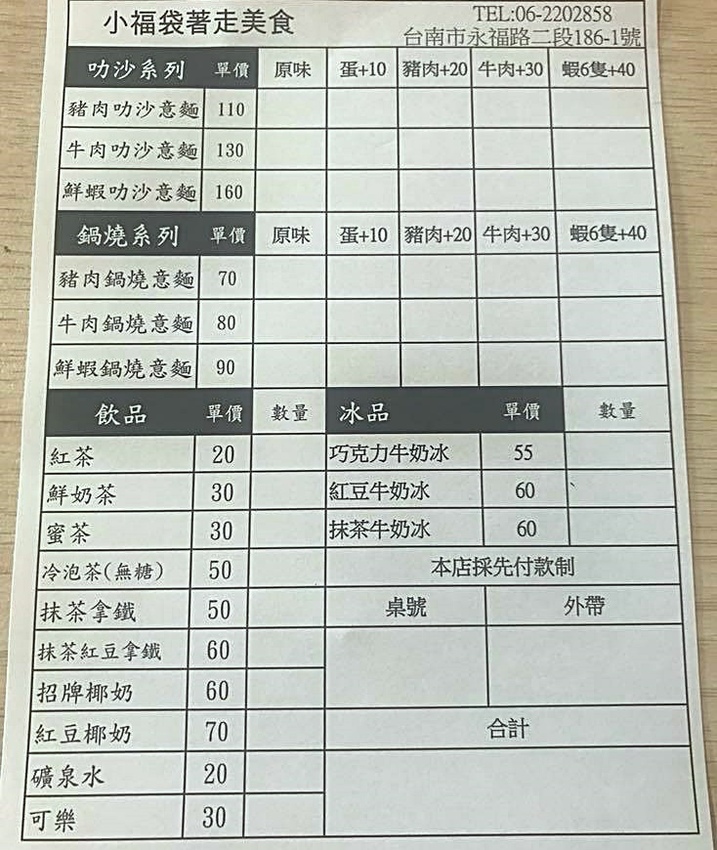 小福袋著走美食
TEL:06-2202858
台南市永福路二段186-1號
叻沙系列 單價 原味 蛋+10 豬肉+20 牛肉+30 蝦6隻+40
豬肉叻沙意麵 110
牛肉叻沙意麵 130
鮮蝦叻沙意麵 160
鍋燒系列 單價 原味 蛋+10 豬肉+20 牛肉+30 蝦6隻+40
豬肉鍋燒意麵 70
牛肉鍋燒意麵 80
鮮蝦鍋燒意麵 90
飲品 單價 數量 冰品 單價 數量
紅茶 20 巧克力牛奶冰 55
鮮奶茶 30 紅豆牛奶冰 60
蜜茶 30 抹茶牛奶冰 60
冷泡茶(無糖) 50 本店採先付款制
抹茶拿鐵 50 桌號 外帶
抹茶紅豆拿鐵 60
招牌椰奶 60
紅豆椰奶 70 合計
礦泉水 20
可樂 30